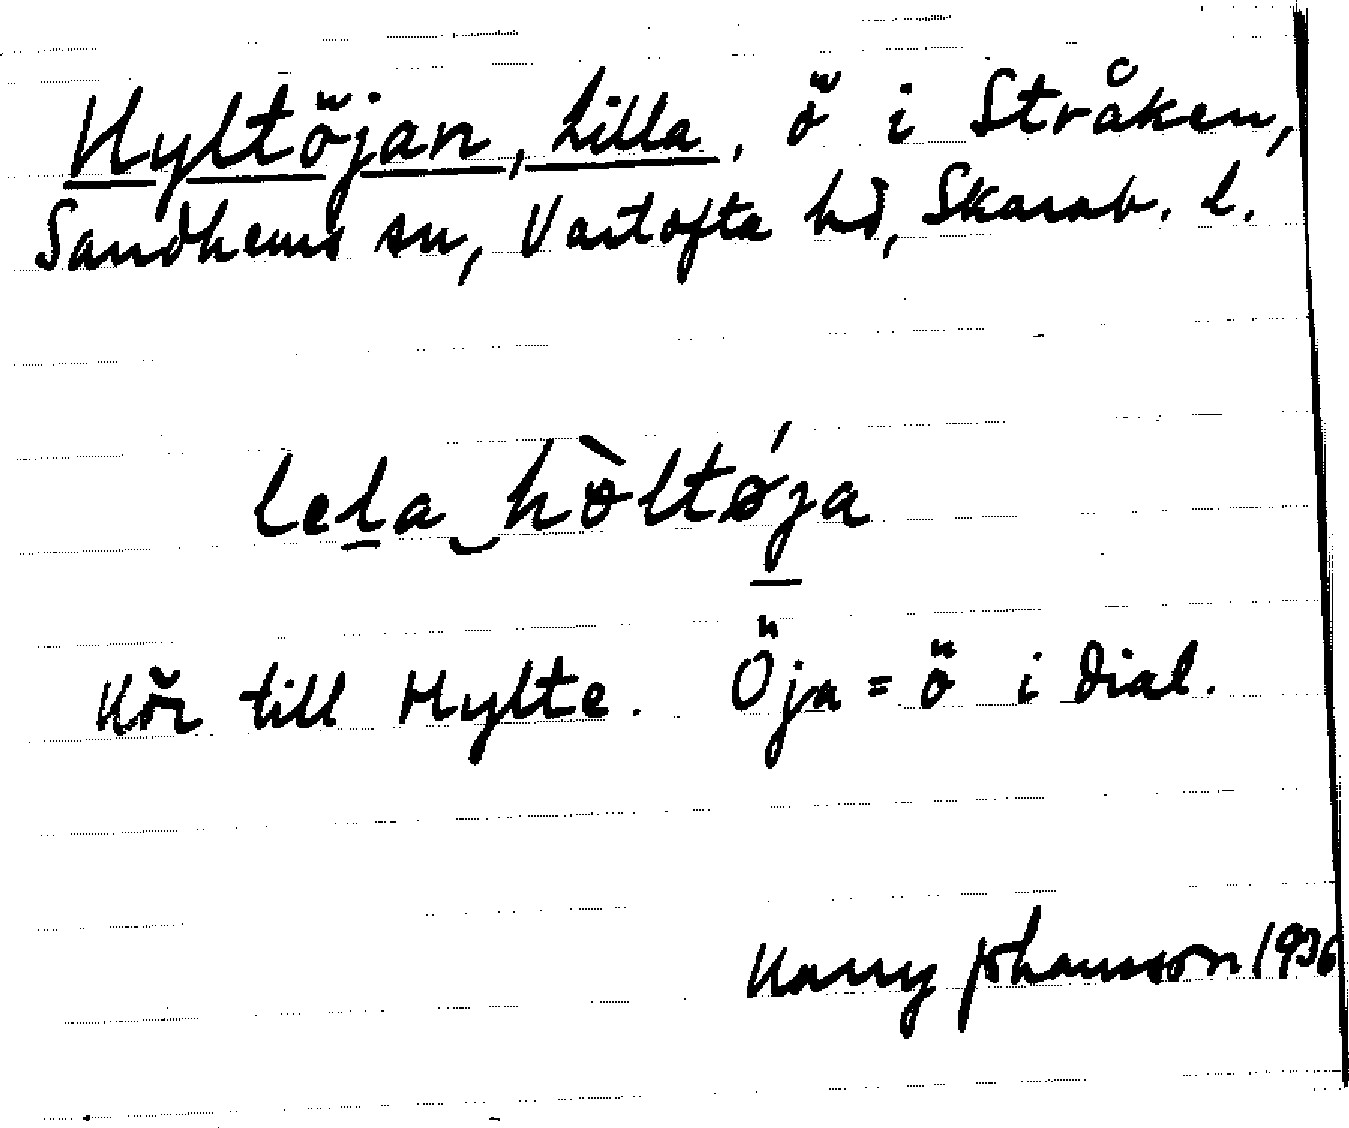 Hyltöjan, Lilla, ö i Stråken,
Sandhems sn, Vartofta hd, Skarab. l.
lela hòltǿja
Hör till Hylte. Öja = ö i dial.
Harry Johansson 1936